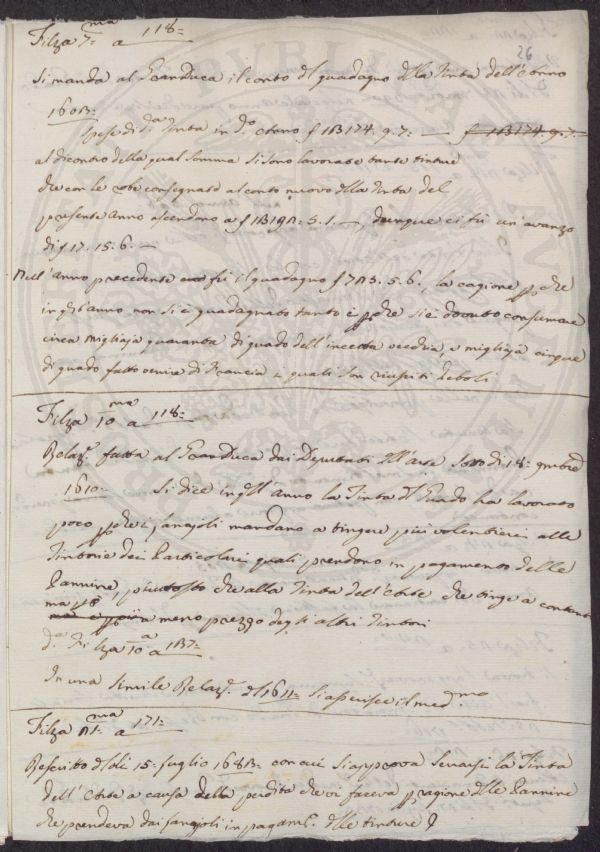 Filza 7.ma a 118=
26
Si manda al GranDuca il conto del guadagno della Tinta dell'Arno
160
Spese di d.a Tinta in d.o f 174. 9. 7. — f 174. 9. 7.
al dicontro della qual somma si sono lavorate tante tinture
che con le robe consegnate al conto nuovo della Tinta del
presente anno ascendono a f 5. 1. —, dunque ci fù un'avanzo
di f 17. 15. 6. —
Nell'anno precedente fù il guadagno f 5. 6., la cagione pche
in q.sto anno non si è guadagnato tanto è pche si è dovuto consumare
circa migliaja quaranta di guado dell'incetta vecchia, e migliaja cinque
di guado fatto venire di Francia i quali son riusciti deboli
Filza 10.ma a 118=
Relaz.e fatta al GranDuca dai Deputati dell'arte sotto di 18= 9mbre
1610= Si dice in q.ll'anno la Tinta del Guado ha lavorato
poco pche i lanajoli mandano a tingere più volentieri alle
Tintorie dei Particolari quali prendono in pagamento delle
Pannine, piuttosto che alla Tinta dell'Arte che tinge a contanti
ma p meno prezzo degli altri Tintori
d.a Filza 10.a a 137=
In una simile Relaz.e del 1611= si asserisce il med.mo
Filza a 171=
Rescritto de li 15= Luglio con cui si approva Serrarsi la Tinta
dell'Arte a causa della perdita che vi faceva p ragione delle Pannine
che prendeva dai lanajoli in pagam.o delle tinture